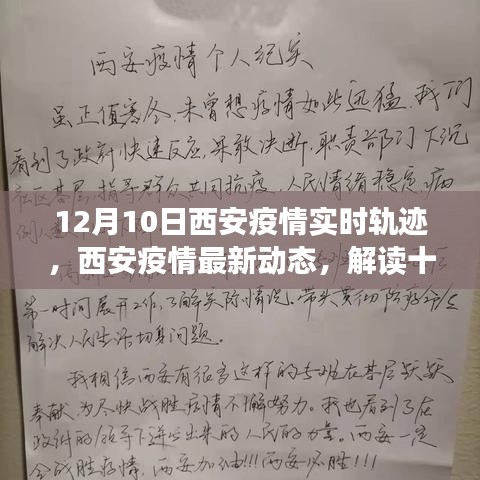 西安疫情个人纪实
虽正值寒冬,未曾想疫情如此迅猛,我们
看到了政府快速反应,果敢决断,职责部门下沉
社区基层,指导群众共同抗疫,人民情绪稳定,病
例
12月10日西安疫情实时轨迹
，西安疫情最新动态，解读十
第一时间展开工作,了解实际情况。带头贯彻防疫
解决人民生活切身问题。
我相信西安有很多这样的专班在基层默默
奉献,为尽快战胜疫情不懈努力。我也看到了在
政府的领导下迸发出来的人民的力量。西安一定
会战胜疫情,西安加油!!!西安必胜!!!